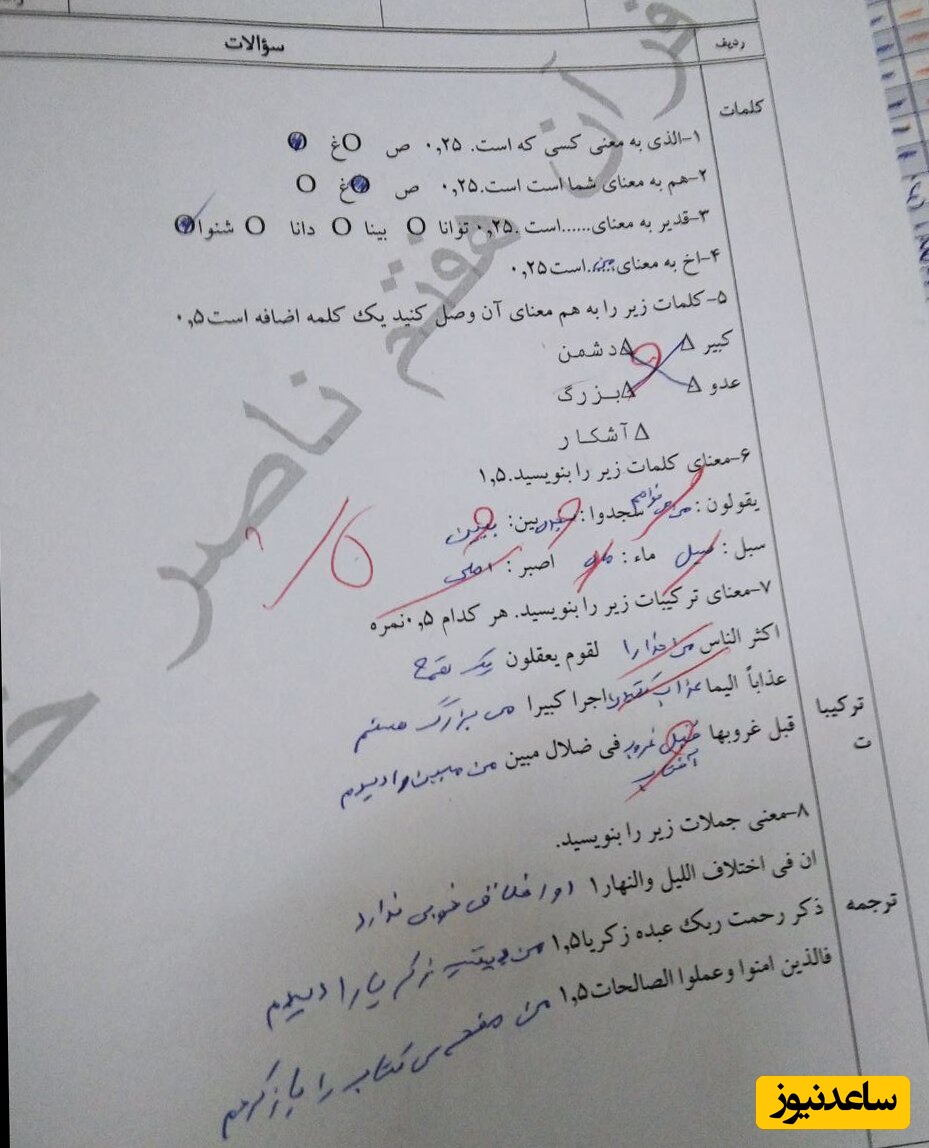 ردیف سؤالات
کلمات
۱-الذی به معنی کسی که است. ۰,۲۵ ص غ
۲-هم به معنای شما است است.۰,۲۵ ص غ
۳-قدیر به معنای......است .۰,۲۵ توانا بینا دانا شنوا
۴-اخ به معنای است۰,۲۵
۵-کلمات زیر را به هم معنای آن وصل کنید یک کلمه اضافه است۰,۵
کبیر دشمن
عدو بزرگ
آشکار
۶-معنای کلمات زیر را بنویسید.۱,۵
یقولون: می خواهم سجدوا: سجده بین: ببین
سبل: سیل ماء: ماه اصبر: اصلی
۷-معنای ترکیبات زیر را بنویسید. هر کدام ۰,۵نمره
اکثر الناس من خدا را لقوم یعقلون یک لقمه
ترکیبا
ت
عذاباً الیما عذاب اجرا کبیرا من بزرگ هستم
قبل غروبها قبل غروب آفتاب فی ضلال مبین من مبین را دیدم
۸-معنی جملات زیر را بنویسید.
ترجمه
ان فی اختلاف اللیل والنهار۱ او اخلاق خوبی ندارد
ذکر رحمت ربک عبده زکریا۱,۵ من زکریا را دیدم
فالذین امنوا وعملوا الصالحات۱,۵ من صفحه ی کتاب را باز کردم
قرآن هفتم ناصر
ساعدنیوز